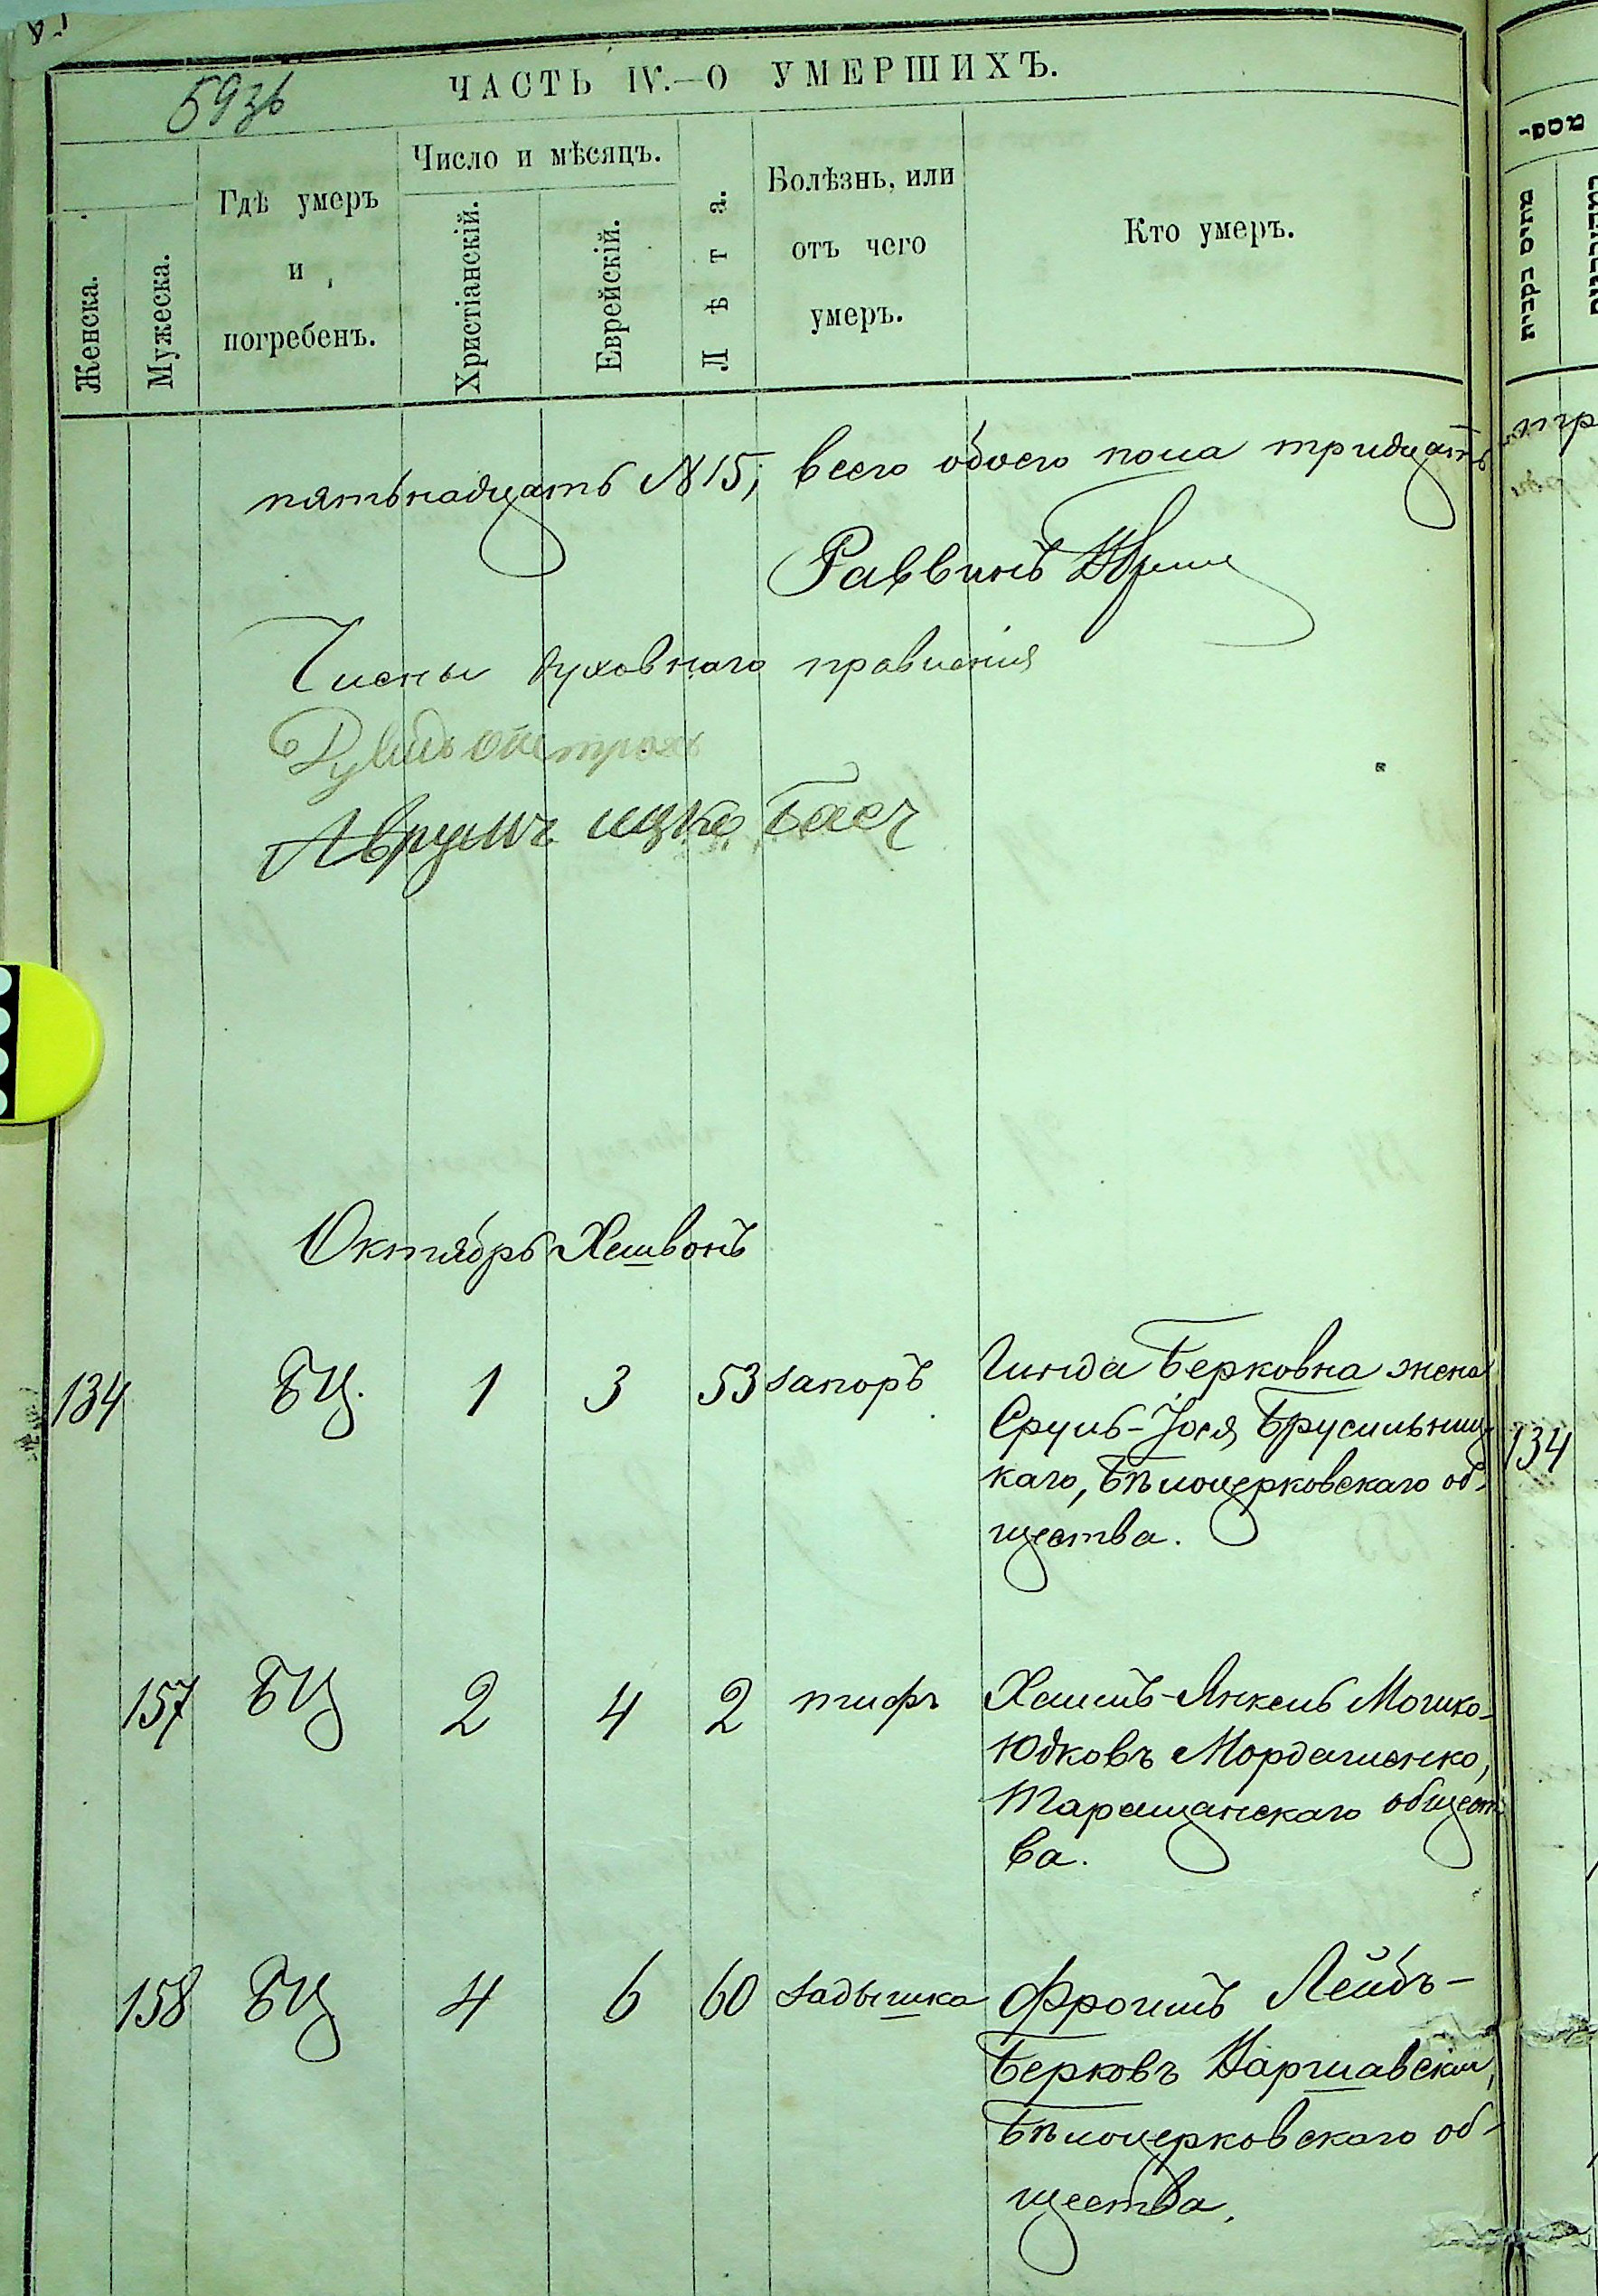 593б
ЧАСТЬ IV.—О УМЕРШИХЪ.
Женска.
Мужеска.
Гдѣ умеръ
и
погребенъ.
Число и мѣсяцъ.
Христіанскій.
Еврейскій.
Лѣта.
Болѣзнь, или
отъ чего
умеръ.
Кто умеръ.
пятьнадцать №15, всего обоего пола тридцать
Раввинъ
Члены духовнаго правленія
Аврумъ Ицко Басъ
Октябрь Хешвонъ
134 БЦ. 1 3 53 запоръ Гинда Берковна жена
Сруль-Іося Брусильниц
каго, Бѣлоцерковскаго об-
щества.
134
157 БЦ 2 4 2 тифъ Хаимъ-Янкель Мошко-
Юдковъ Мордашенко,
Таращанскаго общест
ва.
158 БЦ 4 6 60 задышка Фроимъ Лейбъ-
Берковъ Варшавскій,
Бѣлоцерковскаго об-
щества.